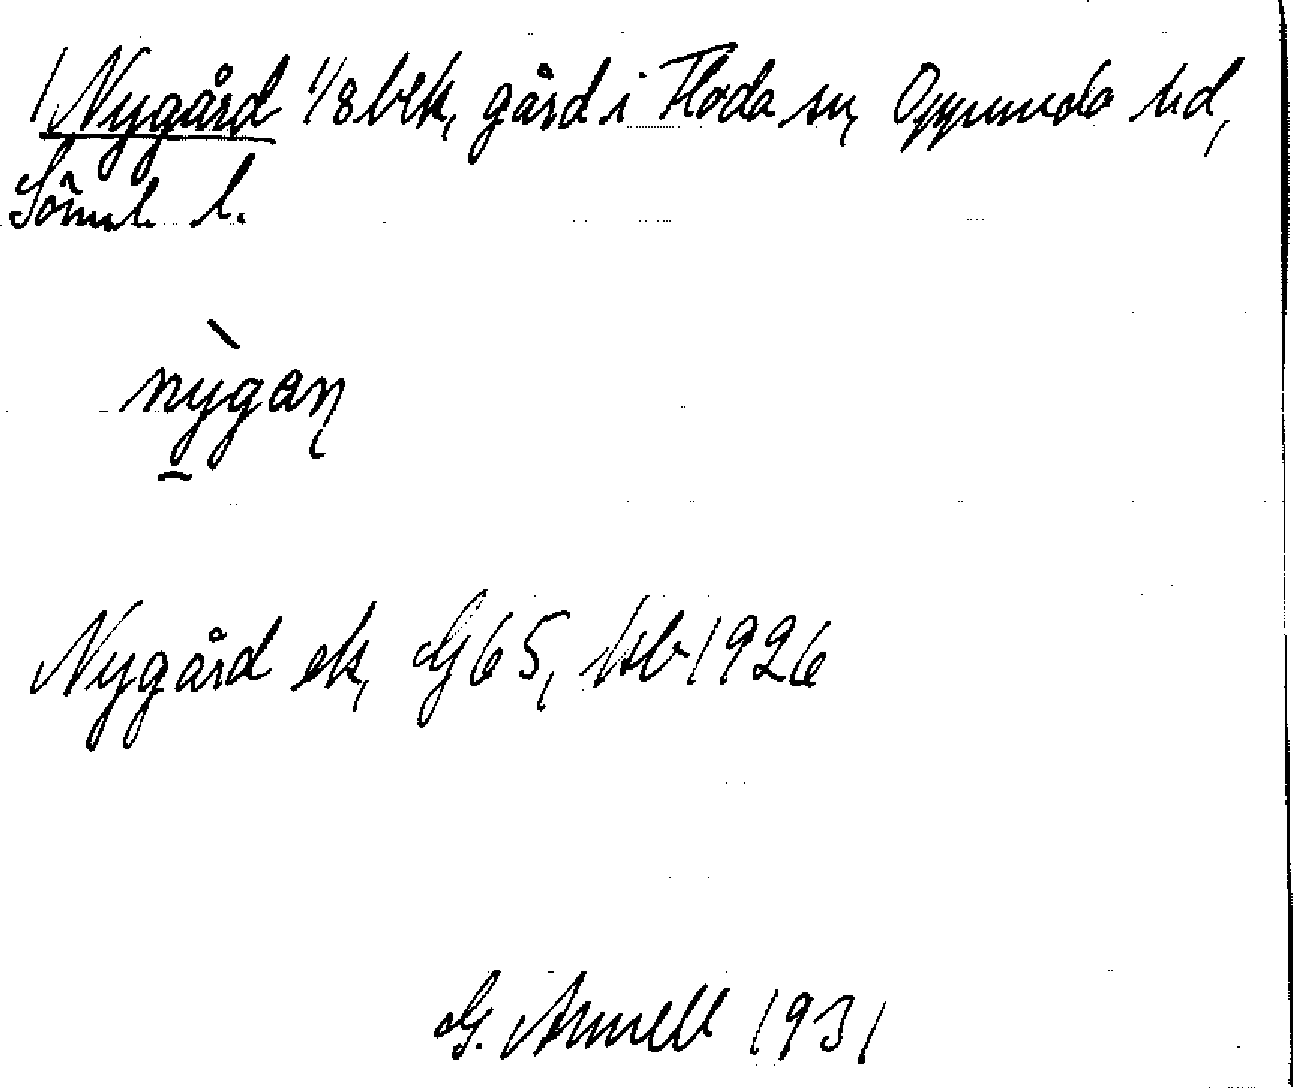 1. Nygård 1/8 blk, gård i Floda sn, Oppunda hd,
Söml. l.
nỳgaɳ
Nygård ek, G65, Hb 1926
G. Annell 1931